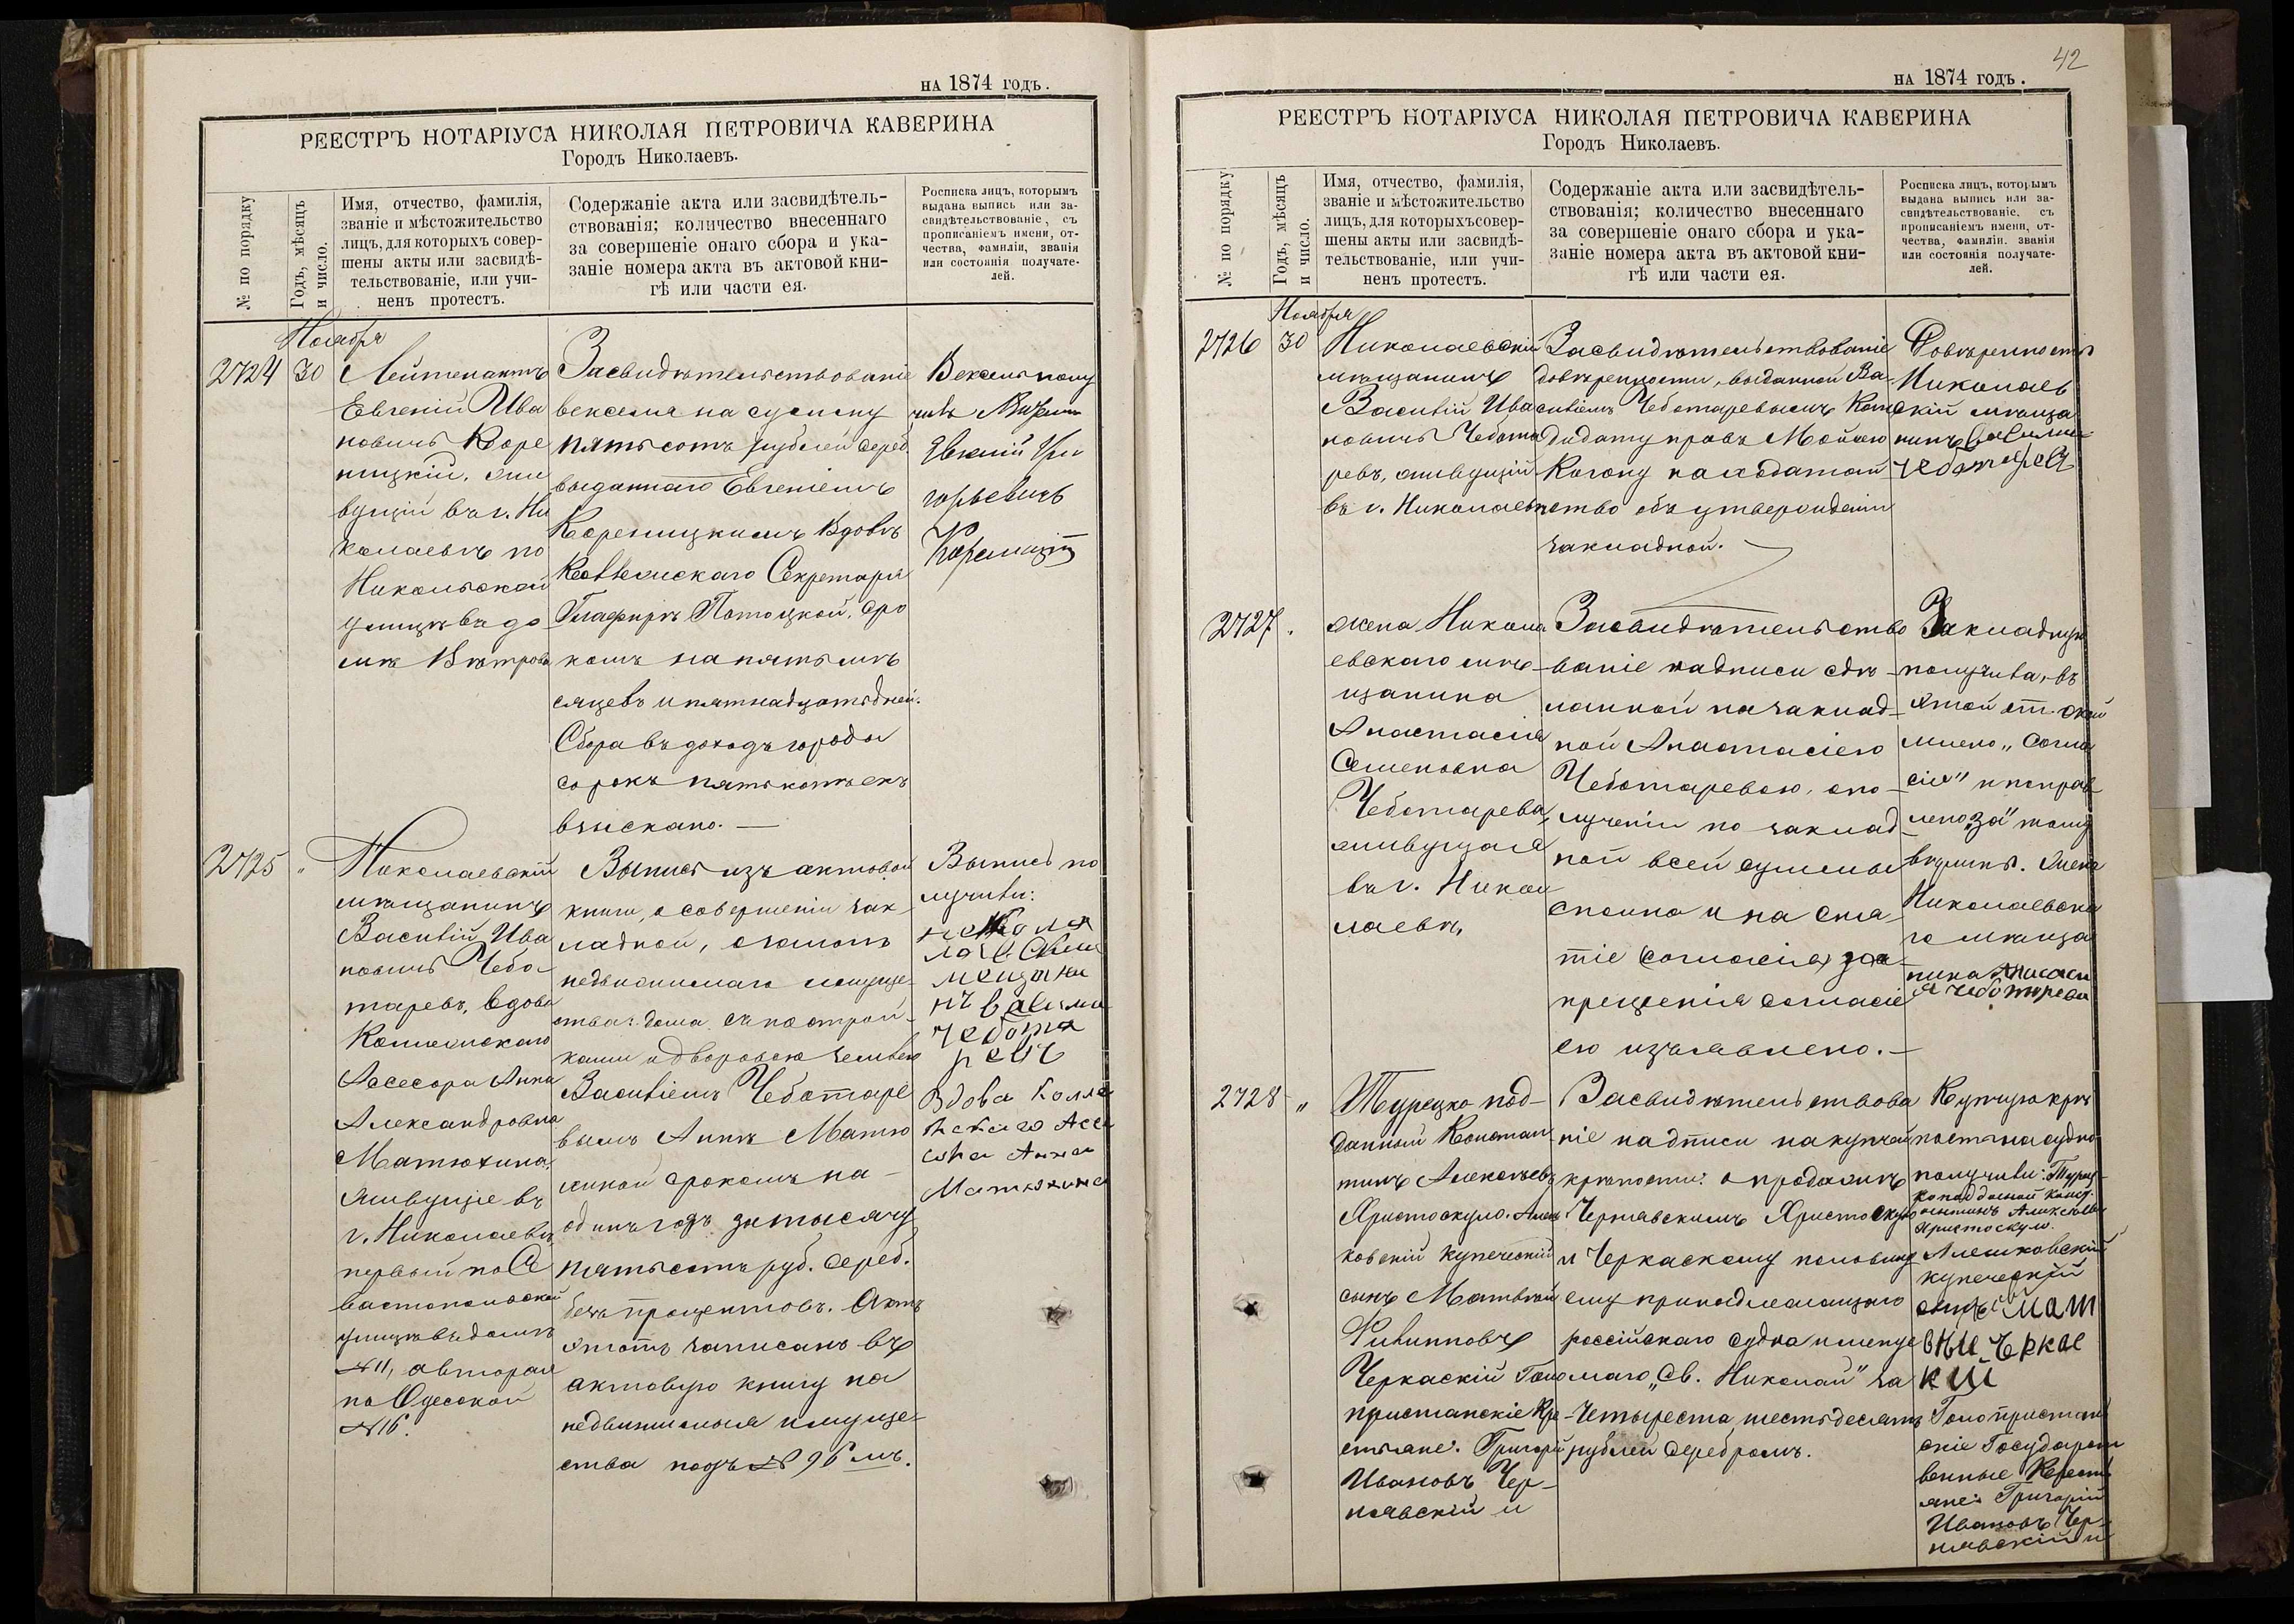 на 1874 годъ.
РЕЕСТРЪ НОТАРІУСА НИКОЛАЯ ПЕТРОВИЧА КАВЕРИНА
Городъ Николаевъ.
№ по порядку
Годъ, мѣсяцъ
и число.
Имя, отчество, фамилія,
званіе и мѣстожительство
лицъ, для которыхъ совер-
шены акты или засвидѣ-
тельствованіе, или учи-
ненъ протестъ.
Содержаніе акта или засвидѣтель-
ствованія; количество внесеннаго
за совершеніе онаго сбора и ука-
заніе номера акта въ актовой кни-
гѣ или части ея.
Росписка лицъ, которымъ
выдана выпись или за-
свидѣтельствованіе, съ
прописаніемъ имени, от-
чества, фамиліи, званія
или состоянія получате-
лей.
Ноября
2724
30
Лейтенантъ
Евгеній Ива
новичъ Коре
ницкій, жи
вущій въ г. Ни
колаевѣ по
Никольской
улицѣ въ до
мѣ Вѣтрова
Засвидѣтельствованіе
векселя на сумму
пятьсотъ рублей сереб.
выданнаго Евгеніемъ
Кореницкимъ Вдовѣ
Коллежскаго Секретаря
Глафирѣ Потоцкой, сро
комъ на пять мѣ
сяцевъ и пятнадцать дней.
Сбора въ доходъ города
сорокъ пять копѣекъ
взыскано. —
Вексель полу
чилъ
Евгеній
2725
"
Николаевскій
мѣщанинъ
Василій Ива
новичъ Чебо-
таревъ, вдова
Коллежскаго
Асесора Анна
Александровна
Матюхина,
живущіе въ
г. Николаевѣ,
первый по Се
вастопольской
улицѣ въ домѣ
№ 11, а вторая
по Одесской
№ 16.
Выпись изъ актовой
книги, о совершеніи зак-
ладной, о
недвижимаго имуще-
ства: дома съ построй-
ками и дворовою землею
Василіемъ Чеботаре
вымъ Аннѣ Матю
хиной срокомъ на
одинъ годъ за тысячу
пятьсотъ руб. сереб.
безъ процентовъ. Актъ
этотъ записанъ въ
актовую книгу на
недвижимыя имуще-
ства подъ № 96 мъ.
Выпись по
лучили:
Вдова Колле
жскаго Асе
сора Анна
Матюхина
42
на 1874 годъ.
РЕЕСТРЪ НОТАРІУСА НИКОЛАЯ ПЕТРОВИЧА КАВЕРИНА
Городъ Николаевъ.
№ по порядку
Годъ, мѣсяцъ
и число.
Имя, отчество, фамилія,
званіе и мѣстожительство
лицъ, для которыхъ совер-
шены акты или засвидѣ-
тельствованіе, или учи-
ненъ протестъ.
Содержаніе акта или засвидѣтель-
ствованія; количество внесеннаго
за совершеніе онаго сбора и ука-
заніе номера акта въ актовой кни-
гѣ или части ея.
Росписка лицъ, которымъ
выдана выпись или за-
свидѣтельствованіе, съ
прописаніемъ имени, от-
чества, фамиліи, званія
или состоянія получате-
лей.
Ноября
2726
30
Николаевскій
мѣщанинъ
Василій Ива
новичъ Чебота
ревъ, живущій
въ г. Николаевѣ
Засвидѣтельствованіе
довѣренности, выданной Ва-
силіемъ Чеботаревымъ Кан
дидату правъ Мойсею
Когону на ходатай
ство объ утвержденіи
закладной. —
Довѣренность
Николаев
скій мѣща
нинъ
2727
.
Жена Никола
евскаго мѣ-
щанина
Анастасія
Семеновна
Чеботарева,
живущая
въ г. Нико
лаевѣ,
Засвидѣтельство
ваніе надписи сдѣ-
ланной на заклад-
ной Анастасіею
Чеботаревою, о по-
лученіи по заклад-
ной всей суммы
сполна и на сня-
тіе согласія, за-
прещенія согласіе
ею изъявлено. —
Закладную
получила, въ
этой ст.
"согла
сія" и поправ
лено "за" тому
вѣрить. Жена
Николаевска
го мѣща
нина Анастасі
я Чеботарева
2728
"
Турецко-под-
данный Констан
тинъ Алексѣевъ
Христоскуло. Алеш
ковскій купеческій
сынъ Матвѣй
Филипповъ
Черкаскій Голо
пристанскіе Кре-
стьяне: Григорій
Ивановъ Чер-
нявскій и
Засвидѣтельствова
ніе надписи на купчей
крѣпости: о продажѣ
Чернявскимъ Христоскуло
и Черкаскому половину
ему принадлежащаго
россійскаго судна именуе
маго "Св. Николай" за
Четыреста шестьдесятъ
рублей серебромъ.
Купчую крѣ
пость на судно
получили: Турец-
ко подданой Конс-
тантинъ Алексѣевъ
Христоскуло.
Алешковскій
купеческій
сынъ Мат
вѣй Черкас
кій
Голопристан
скіе Государст
венные Кресть
яне: Григорій
Ивановъ Чер-
нявскій и